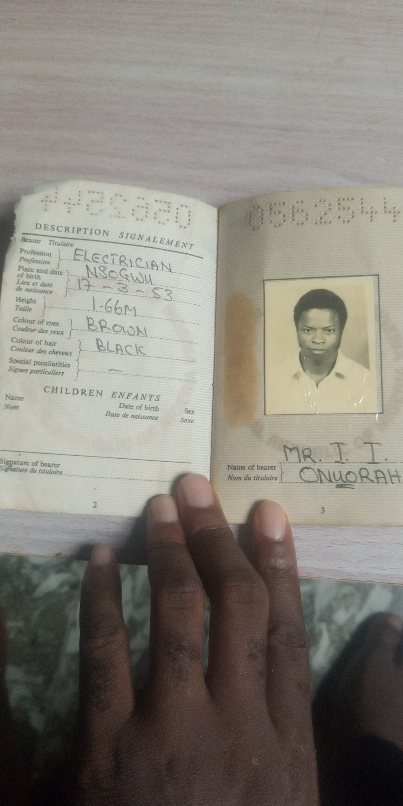 0562544
DESCRIPTION SIGNALEMENT
Bearer Titulaire
Profession
Profession
ELECTRICIAN
Place and date
of birth
Lieu et date
de naissance
NSOGWU
17-3-53
Height
Taille
1.66M
Colour of eyes
Couleur des yeux
BROWN
Colour of hair
Couleur des cheveux
BLACK
Special peculiarities
Signes particuliers
—
CHILDREN ENFANTS
Name Date of birth Sex
Nom Date de naissance Sexe
Signature of bearer
Signature du titulaire
2
0562544
Name of bearer
Nom du titulaire
MR. I. I.
ONUORAH
3